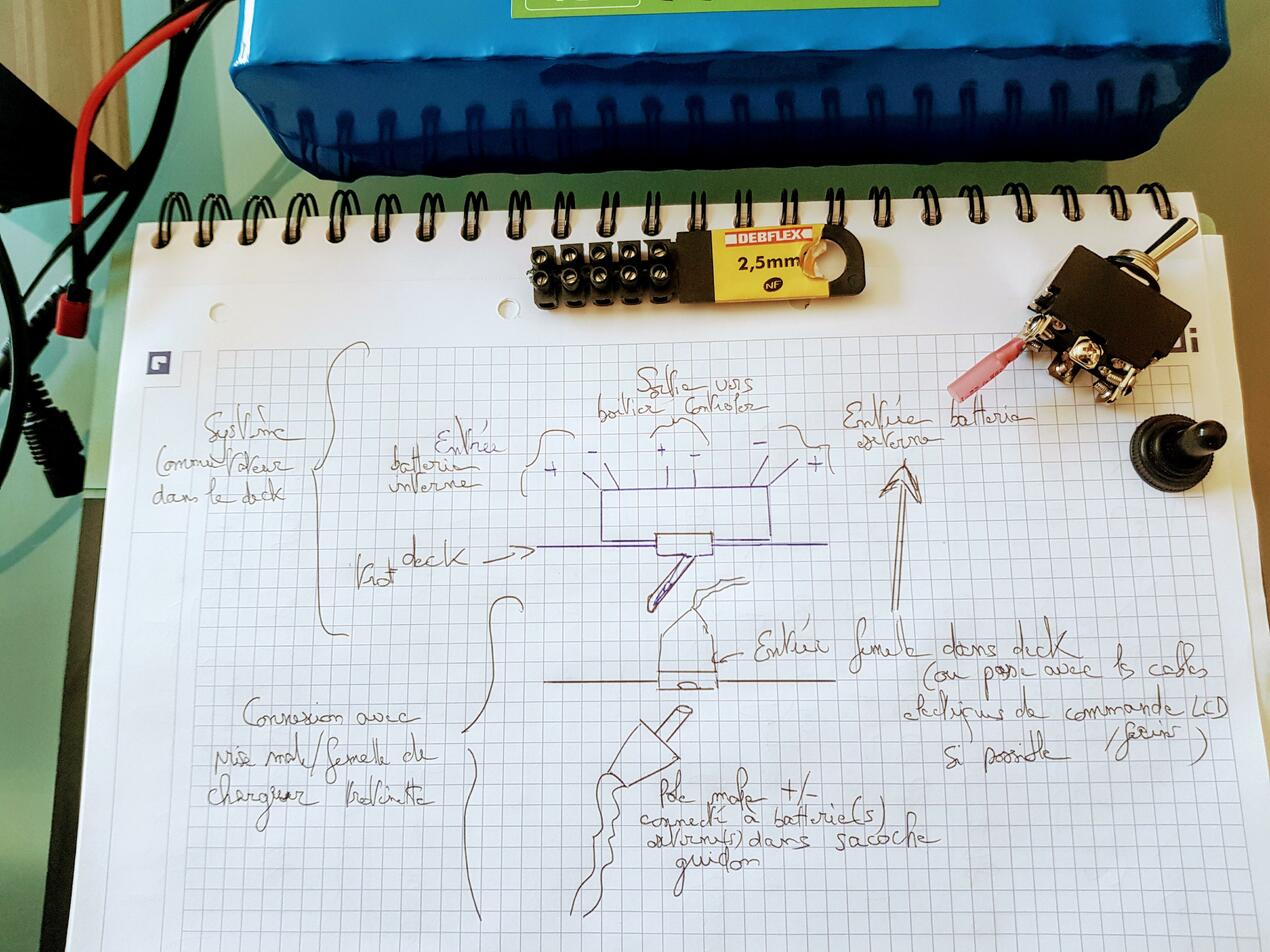 DEBFLEX
2,5mm
NF
Système
Commutateur
dans le deck
Entrée
batterie
interne
+ -
Sortie vers
boitier Controler
+ -
- +
Entrée batterie
externe
Trot deck
Entrée femelle dans deck
(ou passe avec les cables
electriques de commande LCD
si possible /freins)
Connexion avec
prise male/femelle de
chargeur trottinette
Pole male +/-
connecté à batterie(s)
externe(s) dans sacoche
guidon